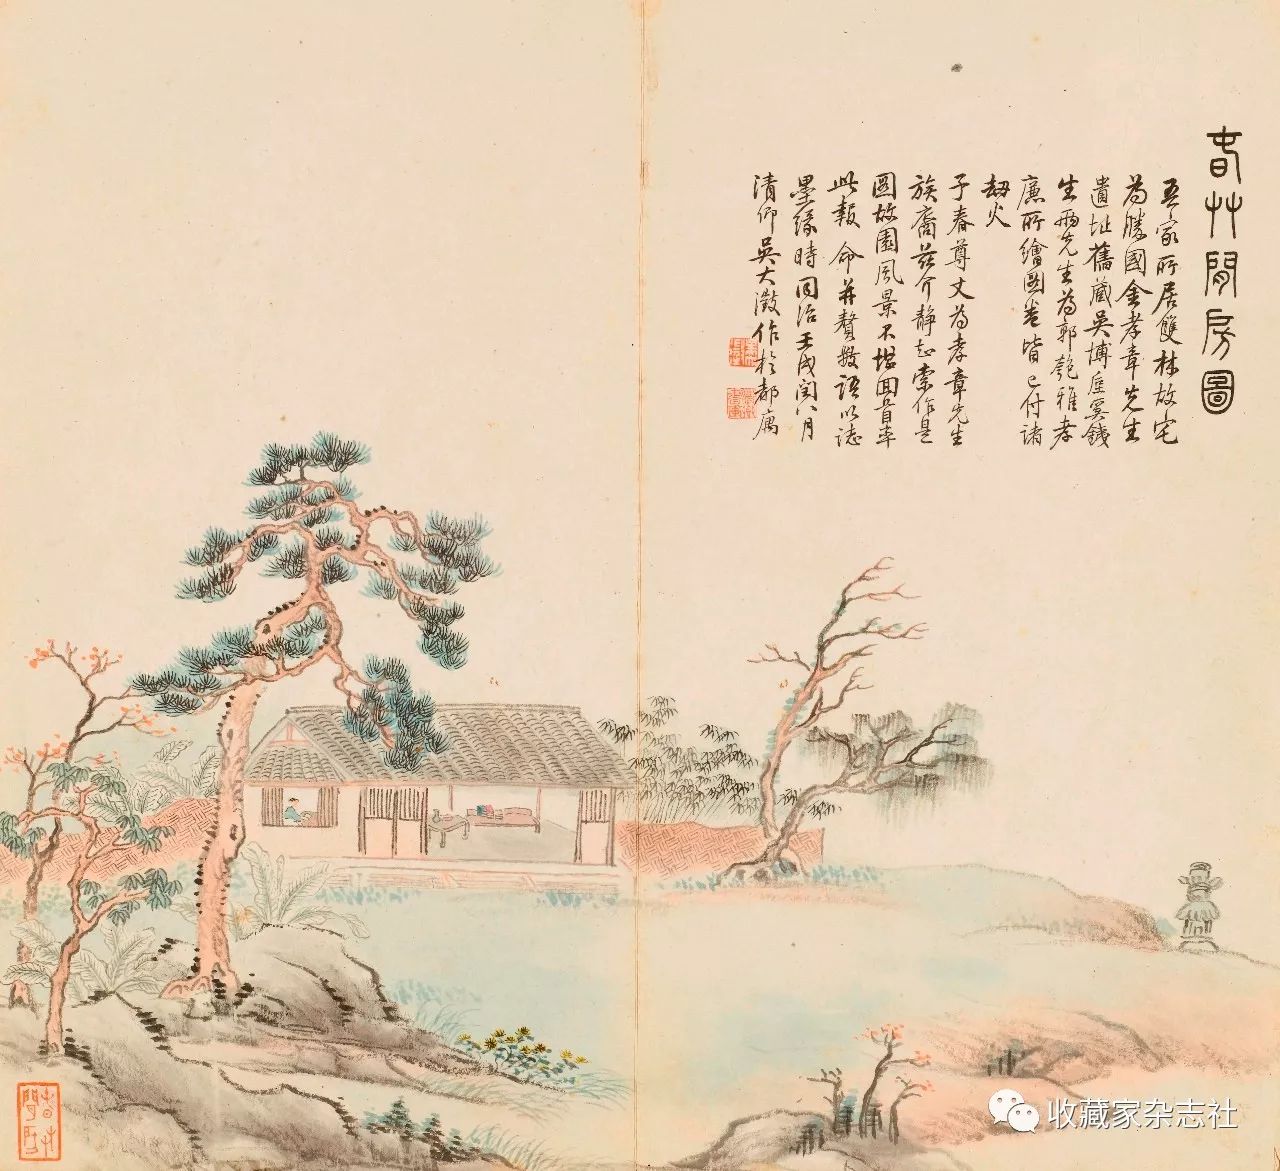 春艸閒房圖
吾家所居雙林故宅
為勝國金孝章先生
遺址舊藏吳博厓奚銕
生兩先生為郭匏雅孝
廉所繪圖卷皆已付諸
劫火
子春尊丈為孝章先生
族裔茲介靜索作是
圖故園風景不堪回首率
此報命并贅數語以誌
墨緣時同治壬戌閏八月
清卿吳大澂作於都寓
春艸閒房
收藏家杂志社